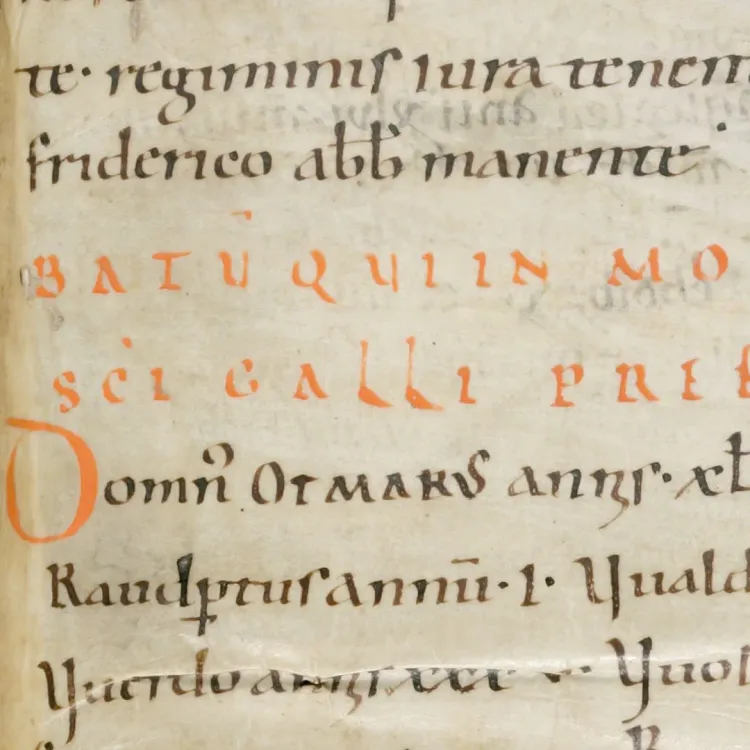 te· regiminis iura tenen
friderico abb manente
BATŪ QUI IN MO
SCI GALLI PRE
Domn⁹ OTMARUS annis· xl
Raudptus annū· 1· Uuald
Uuerdo annis xxx